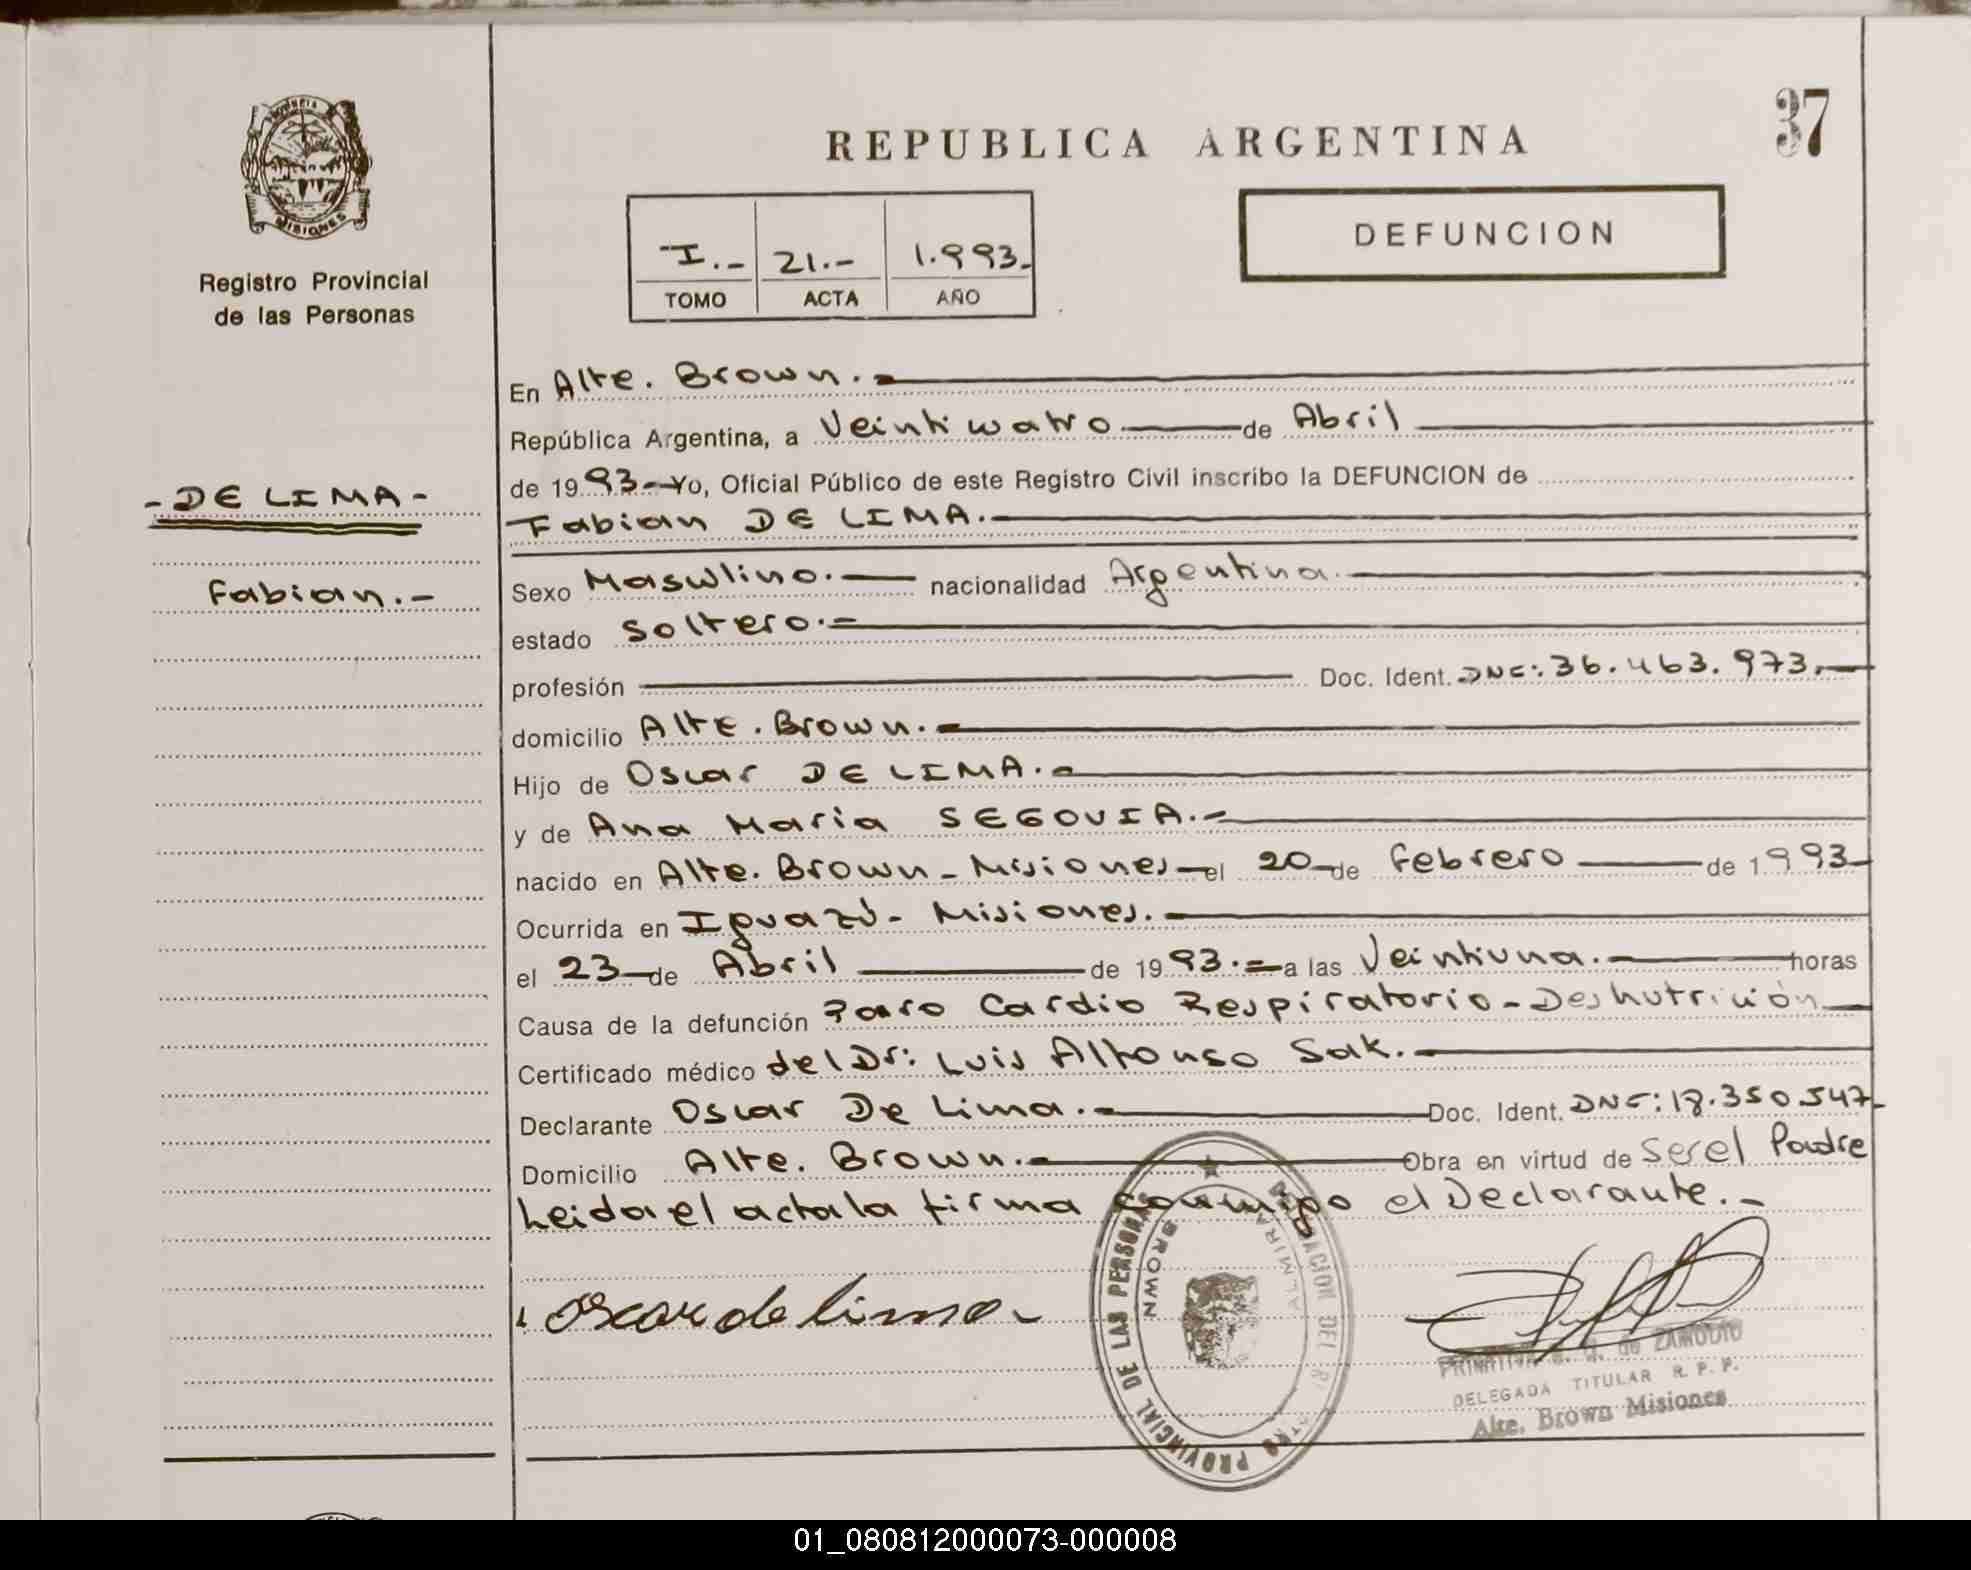 37
REPUBLICA ARGENTINA
PROVINCIA
MISIONES
Registro Provincial
de las Personas
I.- 21.- 1.993.-
TOMO ACTA AÑO
DEFUNCION
- DE LIMA -
Fabian.-
En Alte. Brown.-
República Argentina, a Veinticuatro de Abril
de 1993 Yo, Oficial Público de este Registro Civil inscribo la DEFUNCION de
Fabian DE LIMA.
Sexo Masculino. nacionalidad Argentina.
estado Soltero.-
profesión Doc. Ident. DNI: 36.463.973.
domicilio Alte. Brown.-
Hijo de Oscar DE LIMA.-
y de Ana Maria SEGOVIA.-
nacido en Alte. Brown - Misiones el 20 de Febrero de 1993
Ocurrida en Iguazú - Misiones.
el 23 de Abril de 1993.- a las Veintiuna. horas
Causa de la defunción Paro Cardio Respiratorio - Desnutrición
Certificado médico del Dr: Luis Alfonso Sak.
Declarante Oscar De Lima.- Doc. Ident. DNI: 18.350.547-
Domicilio Alte. Brown.- Obra en virtud de Ser el Padre
Leida el acta la firma conmigo el Declarante.-
oscar de lima
PROVINCIAL DE LAS PERSONAS
ALMIRANTE BROWN
de ZAMUDIO
DELEGADA TITULAR R. P. P.
Alte. Brown Misiones
01_080812000073-000008